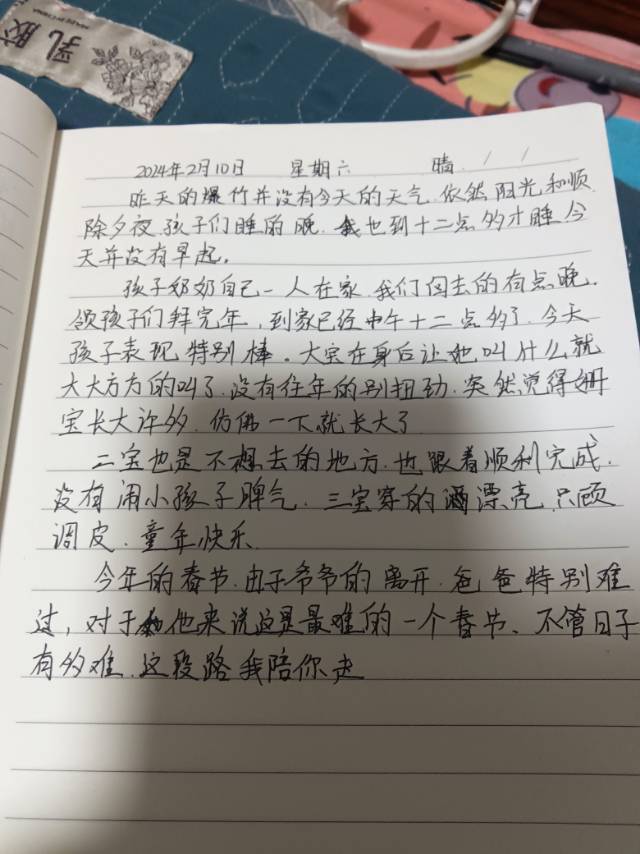 乳胶
2024年2月10日 星期六 晴
昨天的爆竹并没有今天的天气.依然阳光和顺
除夕夜.孩子们睡的晚.我也到十二点多才睡今
天并没有早起.
孩子奶奶自己一人在家.我们回去的有点晚.
领孩子们拜完年,到家已经中午十二点多了.今天
孩子表现特别棒.大宝在身后让她叫什么就
大大方方的叫了.没有往年的别扭劲.突然觉得姗
宝长大许多.仿佛一下就长大了
二宝也是不想去的地方.也跟着顺利完成、
没有闹小孩子脾气.三宝穿的漂亮.只顾
调皮.童年快乐
今年的春节.由于爷爷的离开.爸爸特别难
过,对于他来说这是最难的一个春节、不管日子
有多难.这段路我陪你走